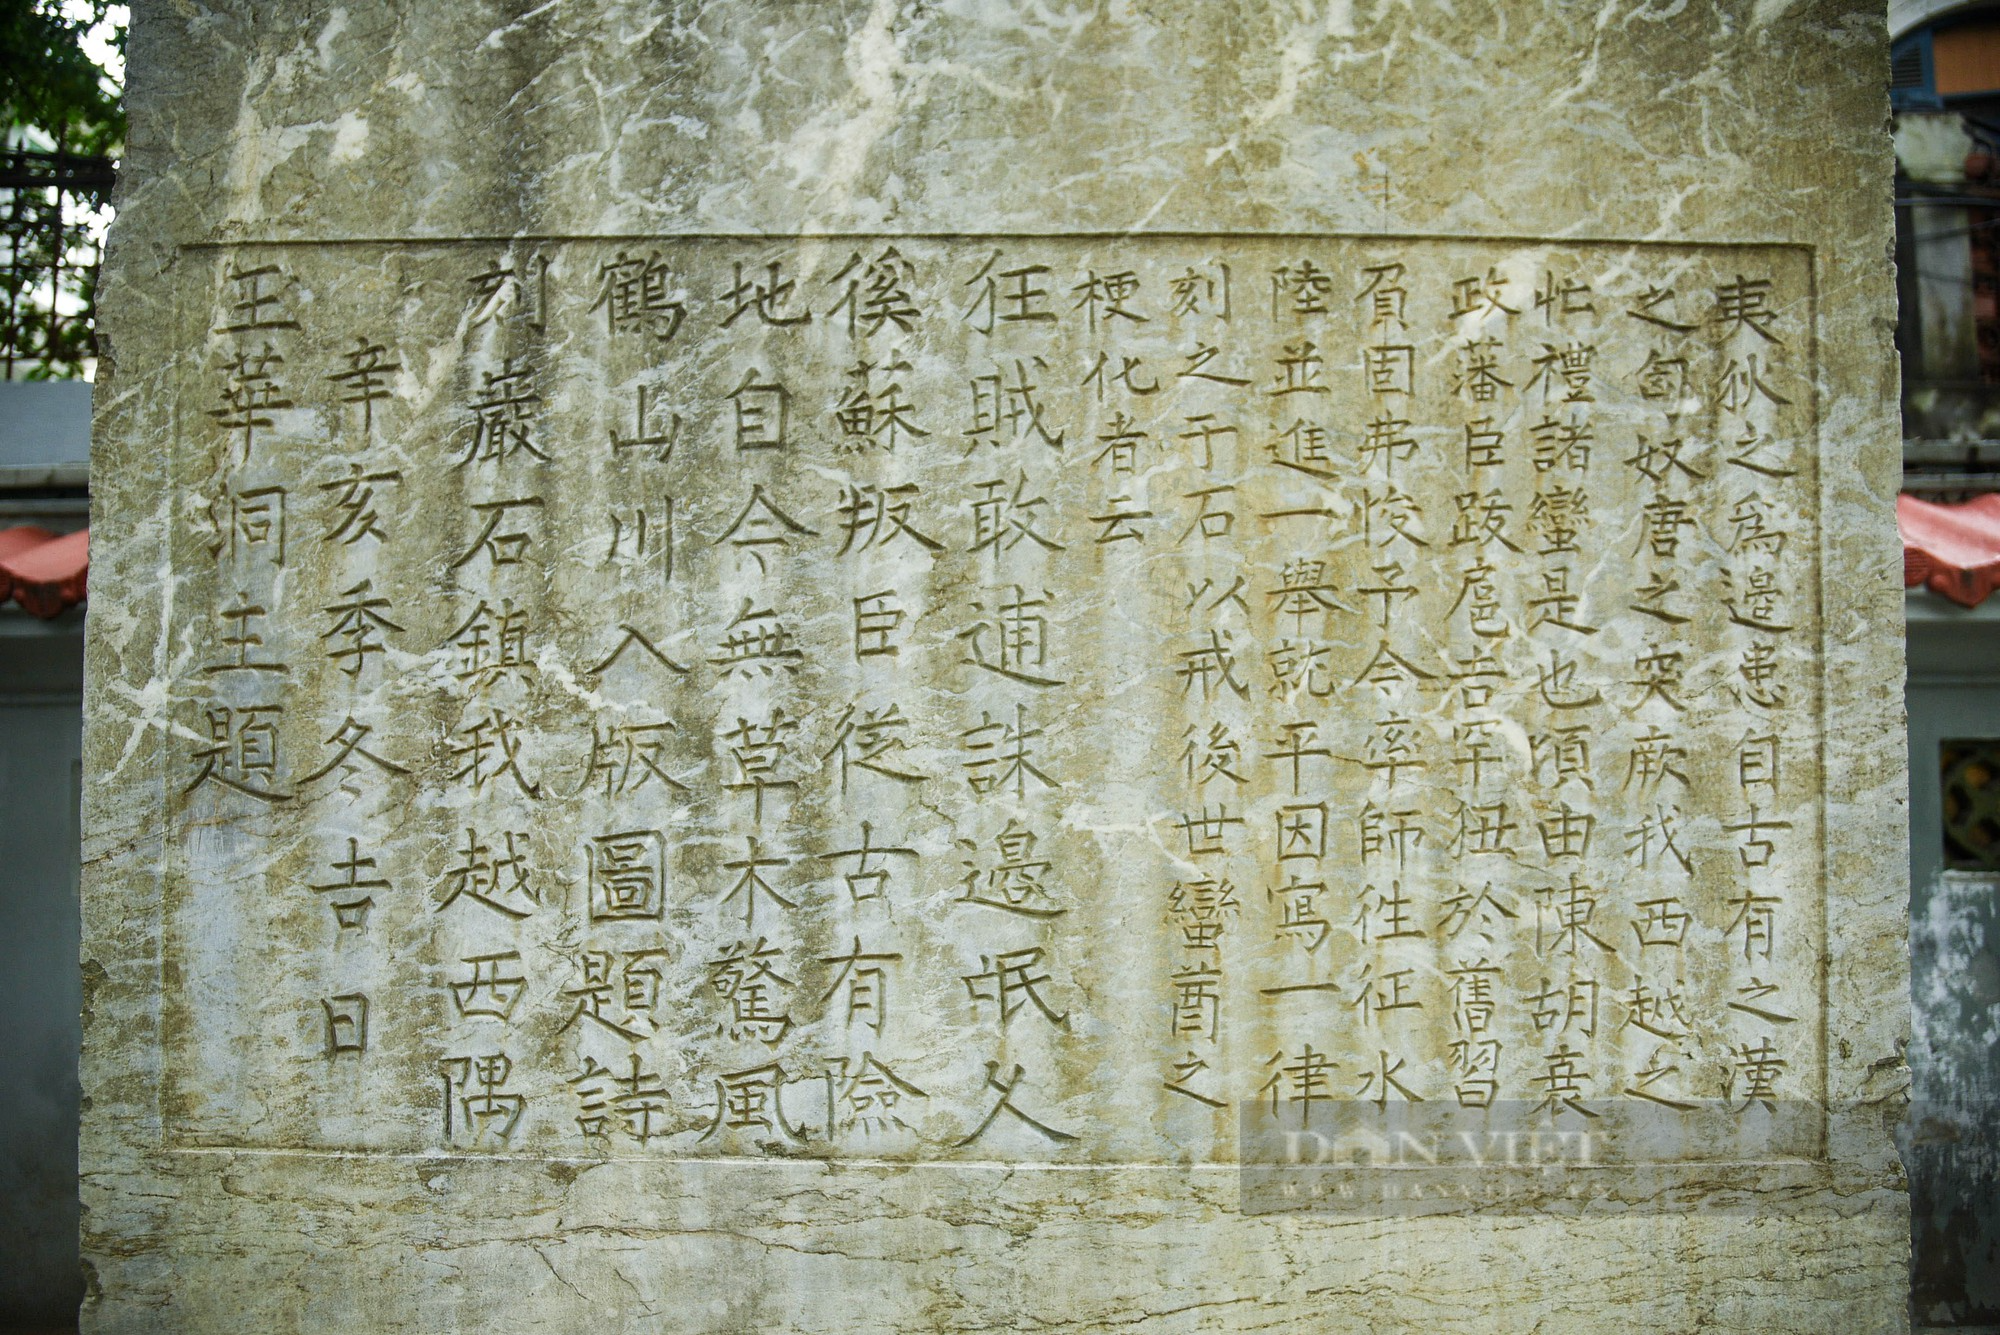 夷狄之爲邊患自古有之漢
之匈奴唐之突厥我西越之
忙禮諸蠻是也頃由陳胡衰
政藩臣跋扈吉罕狃於舊習
負固弗悛予今率師徃征水
陸並進一舉就平因寫一律
刻之于石以戒後世蠻酋之
梗化者云
狂賊敢逋誅邊氓久
徯蘇叛臣從古有險
地自今無草木驚風
鶴山川入版圖題詩
刻巖石鎮我越西隅
辛亥季冬吉日
玉華洞主題
DÂN VIỆT